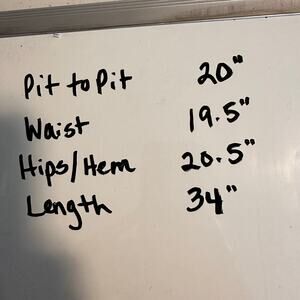 Pit to Pit 20"
Waist 19.5"
Hips/Hem 20.5"
Length 34"